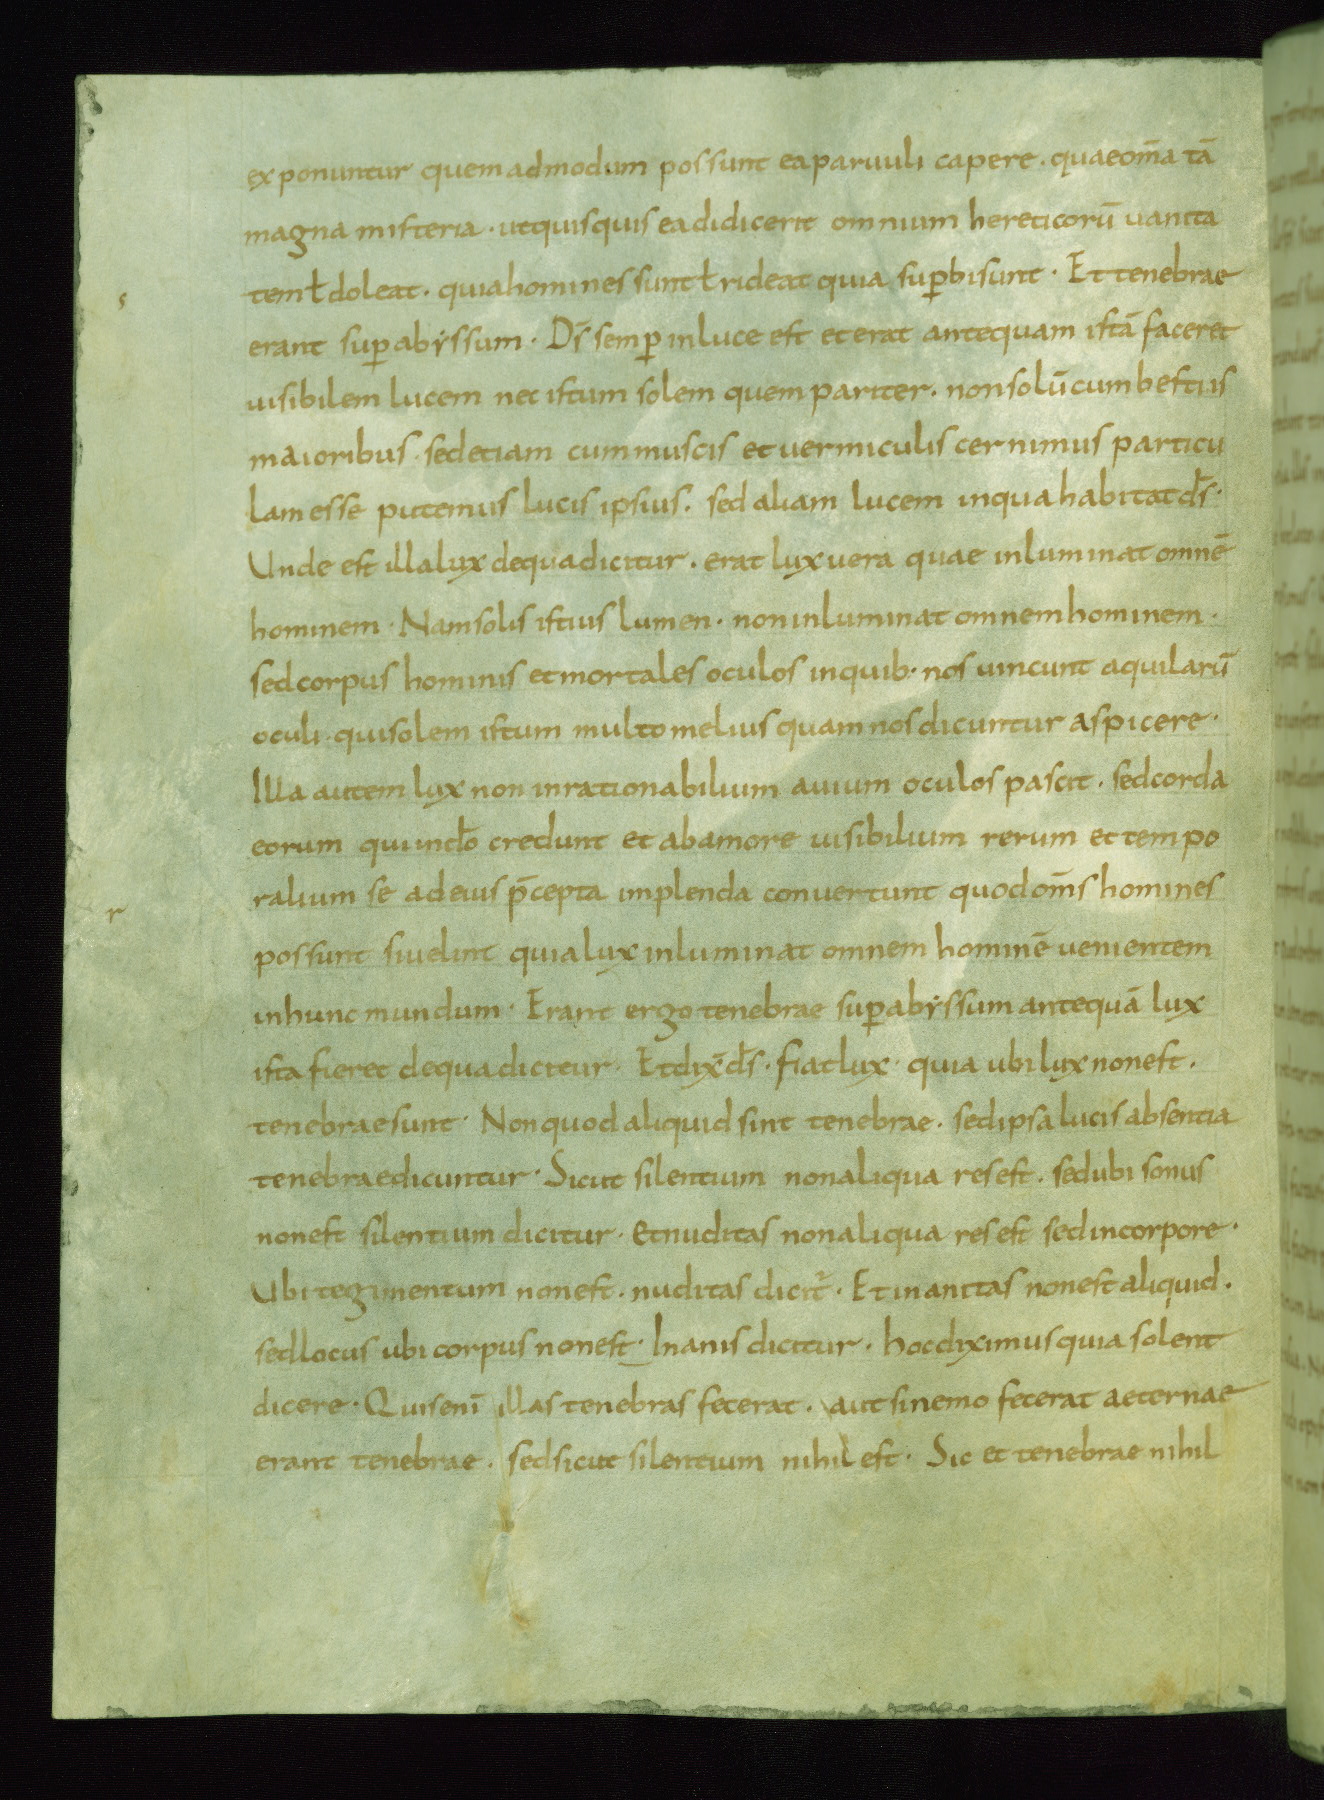 exponuntur quemadmodum possunt eaparuuli capere. quaeom̄a tā
magna misteria · utquisquis eadidicerit omnium hereticorū uanita
temł doleat · quiahomines suntł rideat quia suꝑbisunt · Et tenebrae
s
erant suꝑ abẏssum · Dš̄ semꝑ inluce est eterat antequam istā faceret
uisibilem lucem nec istum solem quem pariter. nonsolū cum bestiis
maioribus · sedetiam cummuscis et uermiculis cernimus particu
lam esse putemus lucis ipsius. sed aliam lucem inqua habitat ds̄ ·
Unde est illa lux dequadicitur. erat lux uera quae inluminat omnē
hominem · Nam solis istius lumen · non inluminat omnem hominem ·
sed corpus hominis et mortales oculos inquib· nos uincunt aquilarū
oculi · quisolem istum multo melius quam nos dicuntur aspicere ·
Illa autem lux non inrationabilium auium oculos pascit · sed corda
eorum qui indō credunt et ab amore uisibilium rerum et tempo
ralium se ad eius p̄cepta implenda conuertunt quod om̄s homines
r
possunt siuelint quia lux inluminat omnem hominē uenientem
in hunc mundum · Erant ergo tenebrae suꝑ abẏssum antequā lux
ista fieret dequadicitur · Et dix̄ ds̄ · fiat lux · quia ubi lux non est ·
tenebrae sunt · Non quod aliquid sint tenebrae. sed ipsa lucis absentia
tenebrae dicuntur · Sicut silentium non aliqua res est. sed ubi sonus
non est silentium dicitur · Et nuditas non aliqua res est sed incorpore ·
Ubi tegimentum non est. nuditas dicit᷑ · Et inanitas non est aliquid.
sed locus ubi corpus non est · Inanis dicitur. hoc diximus quia solent
dicere · Quis enī illas tenebras fecerat. aut si nemo fecerat aeternae
erant tenebrae. sed sicut silentium nihil est · Sic et tenebrae nihil